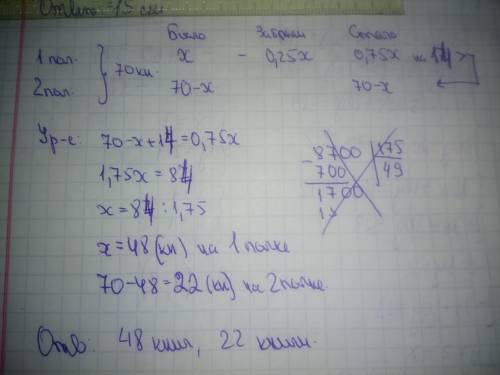 Ответ = 15 см
Было Забрали Стало
1 пол. } 70 кн. x - 0,25x 0,75x на 14 >
2 пол. 70-x 70-x
Ур-е: 70-x+14=0,75x
1,75x=84
x=84:1,75
x=48 (кн) на 1 полке
70-48=22 (кн) на 2 полке.
8700 175
- 700 49
1700
Отв: 48 книг, 22 книги.